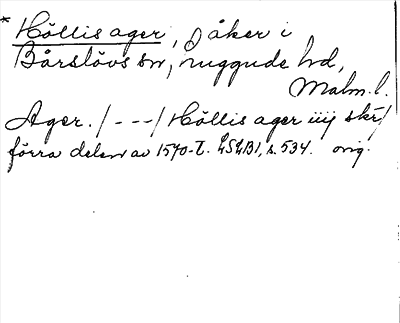 * Höllis ager, } åker i
Bårslövs sn, Luggude hd,
Malm. l.
Ager. /---/ Höllis ager iiij skr/
förra delen av 1570-t. LSLB1, s. 534. orig.